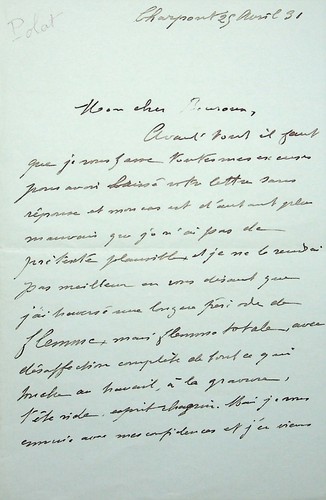 Polat
Charpont 25 Avril 31
Mon cher
Avant tout il faut
que je vous fasse toutes mes excuses
pour avoir laissé votre lettre sans
réponse et mon cas est d'autant plus
mauvais que je n'ai pas de
prétexte plausible et je ne le rendrai
pas meilleur en vous disant que
j'ai traversé une longue période de
flemme, mais flemme totale, avec
désaffection complète de tout ce qui
touche au travail, à la gravure,
tête vide. esprit chagrin. Mais je vous
ennuie avec mes confidences et j'en viens